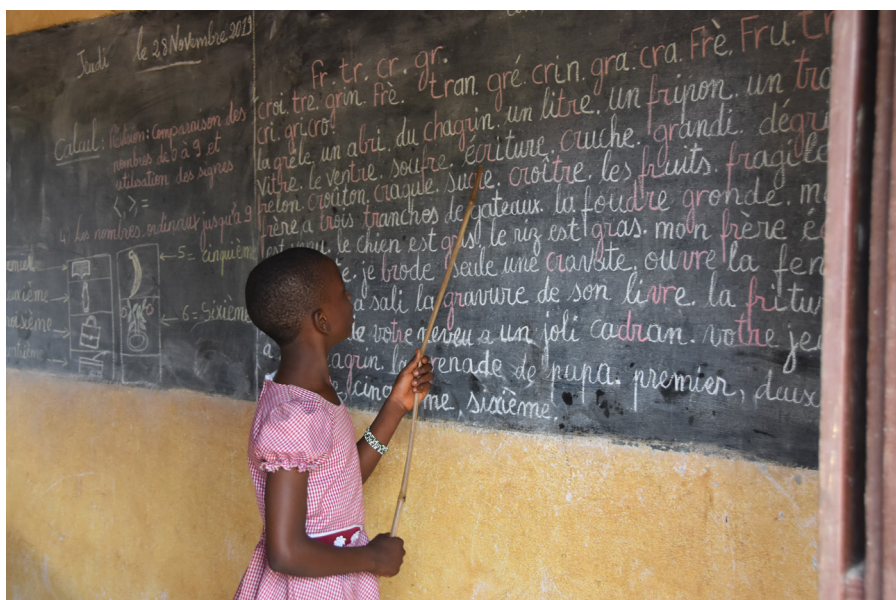 Jeudi le 28 Novembre 2019
Calcul: Révision: Comparaison des
nombres de 0 à 9 et
utilisation des signes
<, >, =
Les nombres ordinaux jusqu'à 9
5 = cinquième
6 = sixième
uxième
oisième
fr. tr. cr. gr.
croi. tre. grin. frè. tran. gré. crin. gra. cra. Frè. Fru.
cri. gri. cro!
la grêle. un abri. du chagrin. un litre. un fripon. un
vitre. le ventre. soufre. écriture. cruche. grandi.
croûton. sucre. croître. les fruits. fragile
frère a trois tranches de gâteaux. la foudre gronde.
le chien est gris. le riz est gras. mon frère
je brode seule une cravate. ouvre la fen
a sali la gravure de son livre. la fritu
de votre neveu a un joli cadran. votre
agrin la grenade de papa. premier, deux
cinq me, sixième.